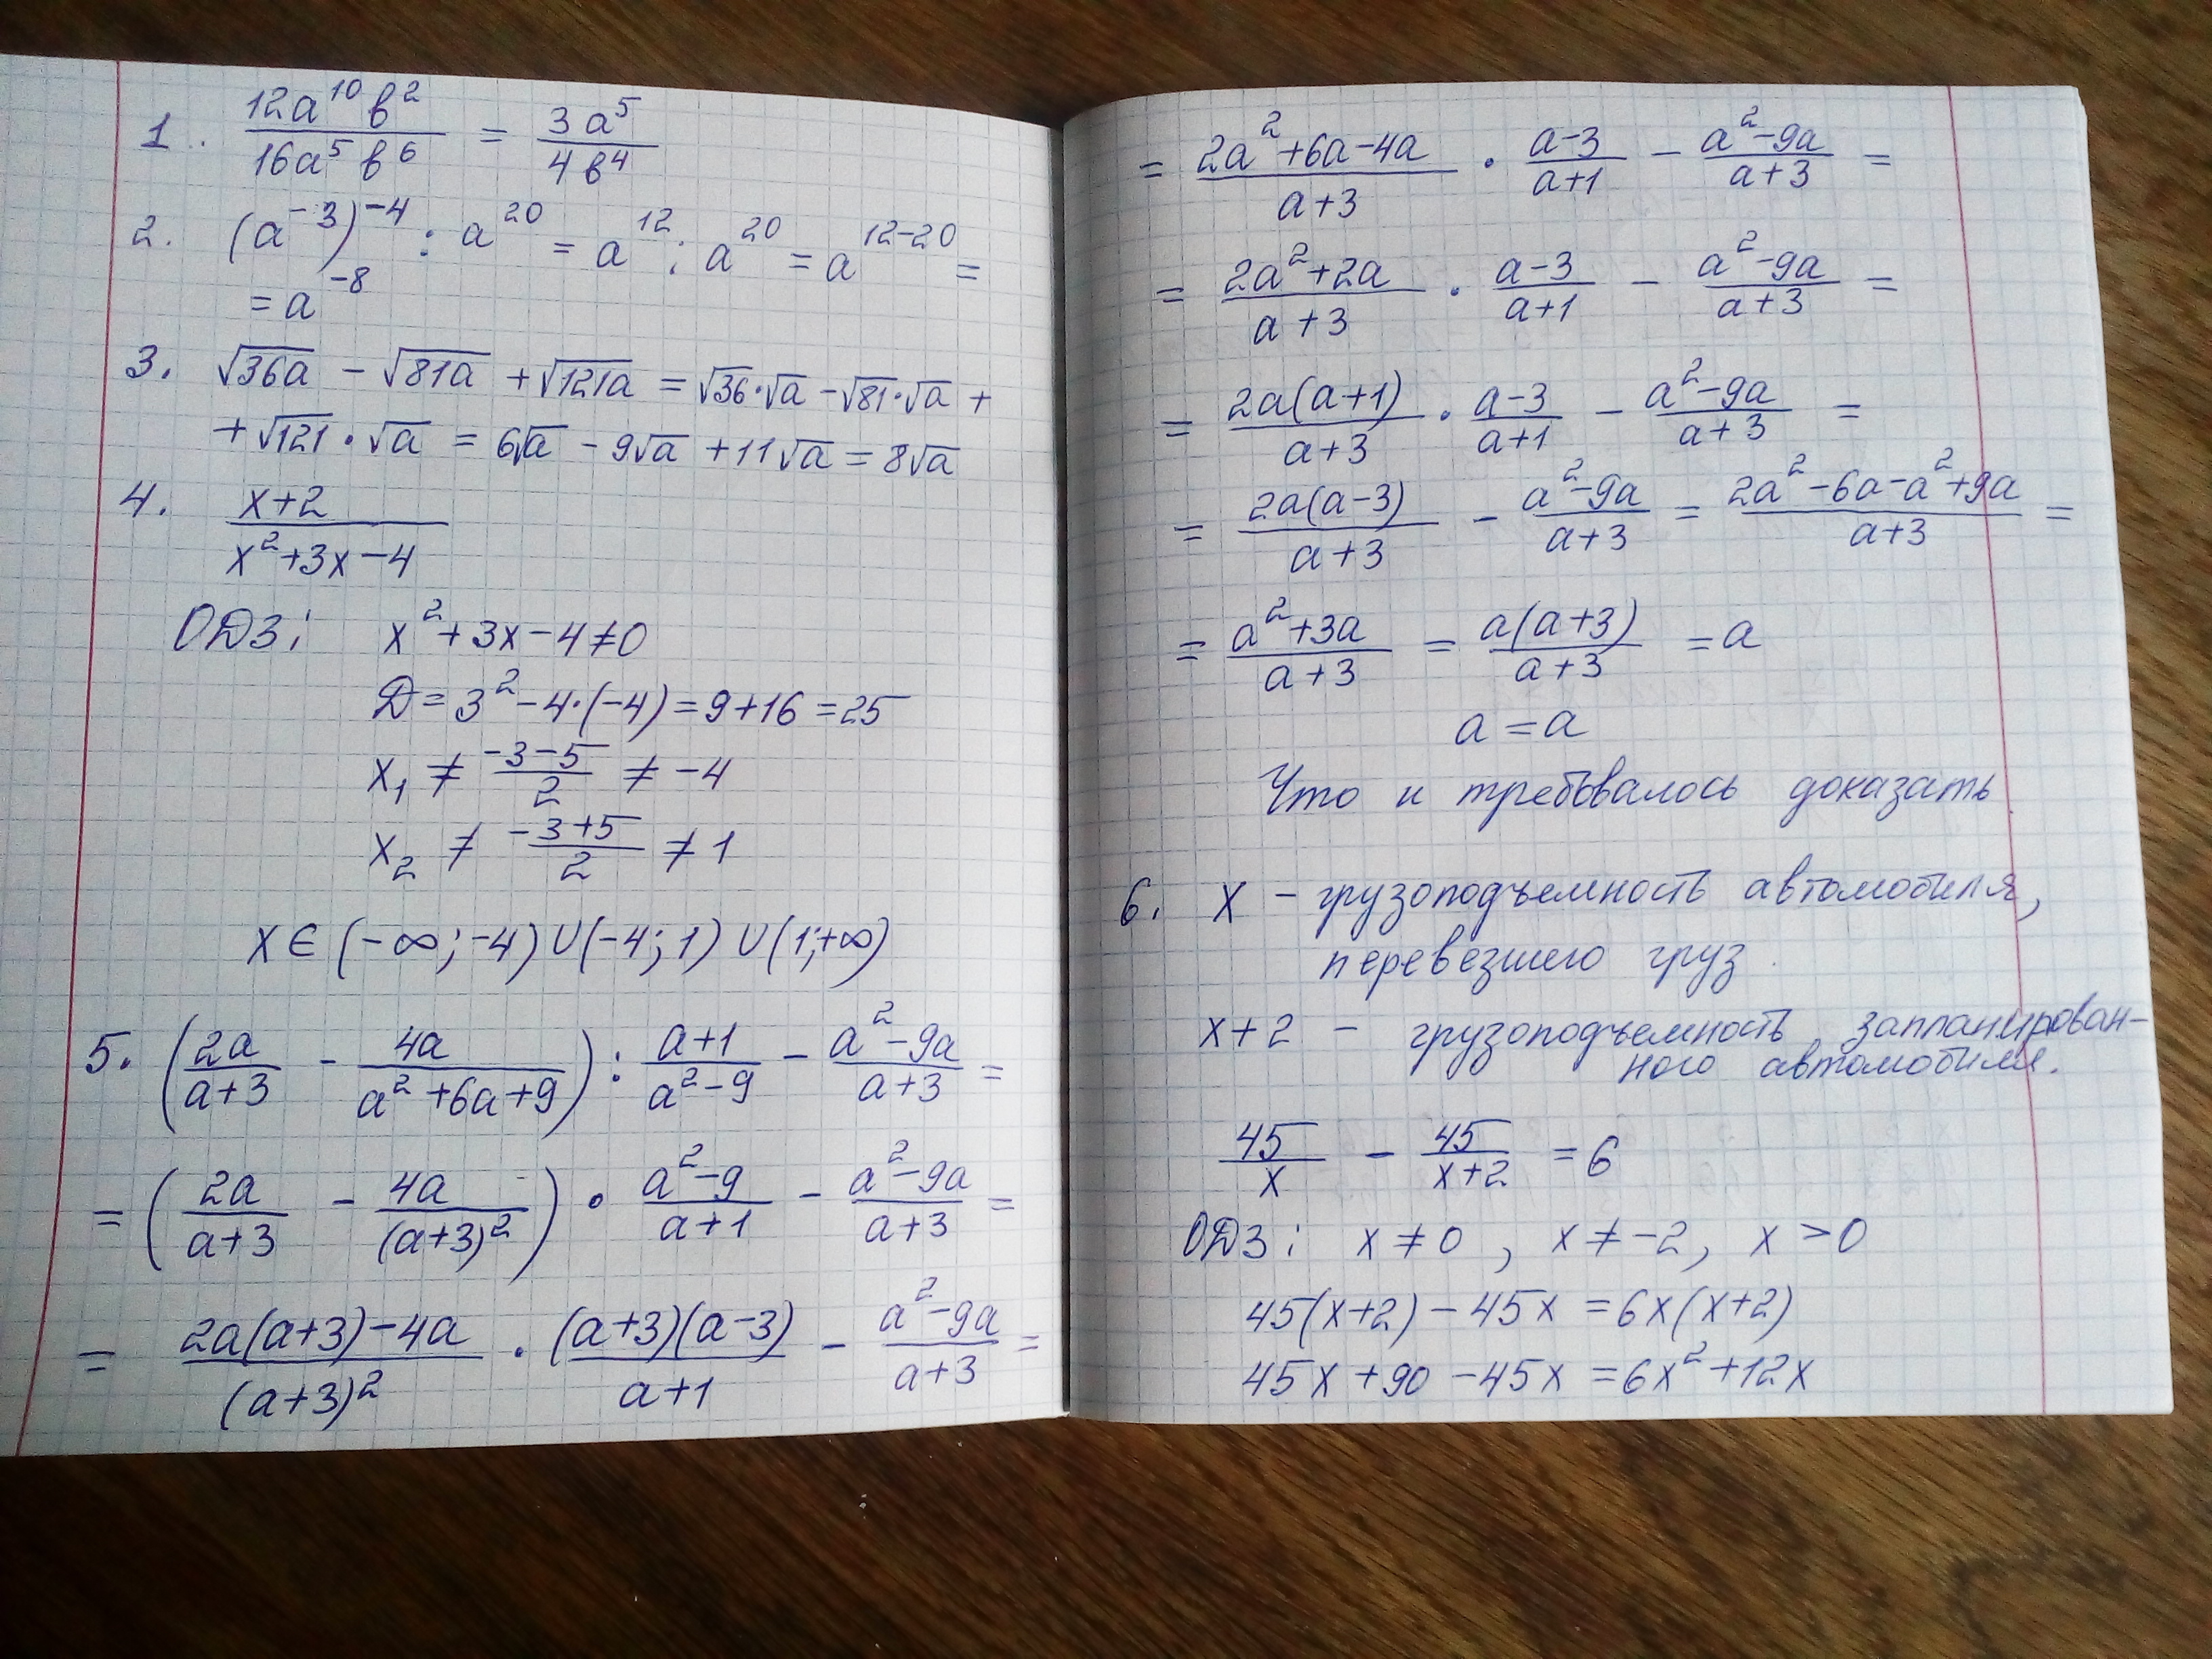 1. 12a^10 в^2 / 16a^5 в^6 = 3a^5 / 4в^4
2. (a^-3)^-4 : a^20 = a^12 : a^20 = a^12-20 =
= a^-8
3. √36a - √81a + √121a = √36·√a - √81·√a +
+ √121·√a = 6√a - 9√a + 11√a = 8√a
4. x+2 / x²+3x-4
ОДЗ: x²+3x-4≠0
D=3²-4·(-4)=9+16=25
x₁ ≠ -3-5 / 2 ≠ -4
x₂ ≠ -3+5 / 2 ≠ 1
x ∈ (-∞;-4)∪(-4;1)∪(1;+∞)
5. (2a / a+3 - 4a / a²+6a+9) : a+1 / a²-9 - a²-9a / a+3 =
= (2a / a+3 - 4a / (a+3)²) · a²-9 / a+1 - a²-9a / a+3 =
= 2a(a+3)-4a / (a+3)² · (a+3)(a-3) / a+1 - a²-9a / a+3 =
= 2a²+6a-4a / a+3 · a-3 / a+1 - a²-9a / a+3 =
= 2a²+2a / a+3 · a-3 / a+1 - a²-9a / a+3 =
= 2a(a+1) / a+3 · a-3 / a+1 - a²-9a / a+3 =
= 2a(a-3) / a+3 - a²-9a / a+3 = 2a²-6a-a²+9a / a+3 =
= a²+3a / a+3 = a(a+3) / a+3 = a
a = a
Что и требовалось доказать
6. x - грузоподъемность автомобиля,
перевезшего груз.
x+2 - грузоподъемность запланирован-
ного автомобиля.
45 / x - 45 / x+2 = 6
ОДЗ: x≠0, x≠-2, x>0
45(x+2)-45x=6x(x+2)
45x+90-45x=6x²+12x